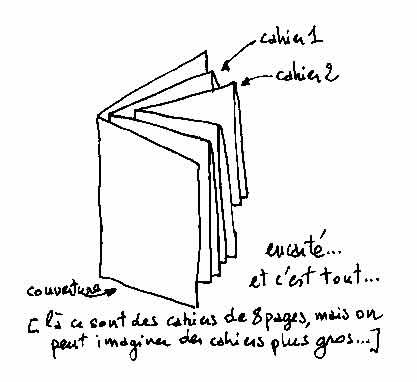 cahier 1
cahier 2
encarté...
et c'est tout...
couverture
[là ce sont des cahiers de 8 pages, mais on
peut imaginer des cahiers plus gros...]